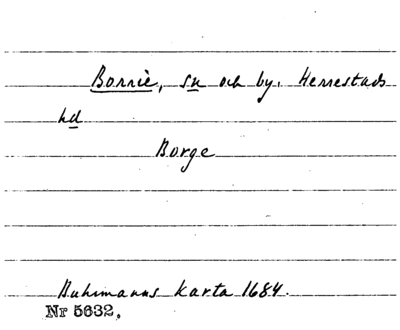 Borrie, sn och by. Herrestads
hd
Borge
Buhrmanns karta 1684.
Nr 5632.